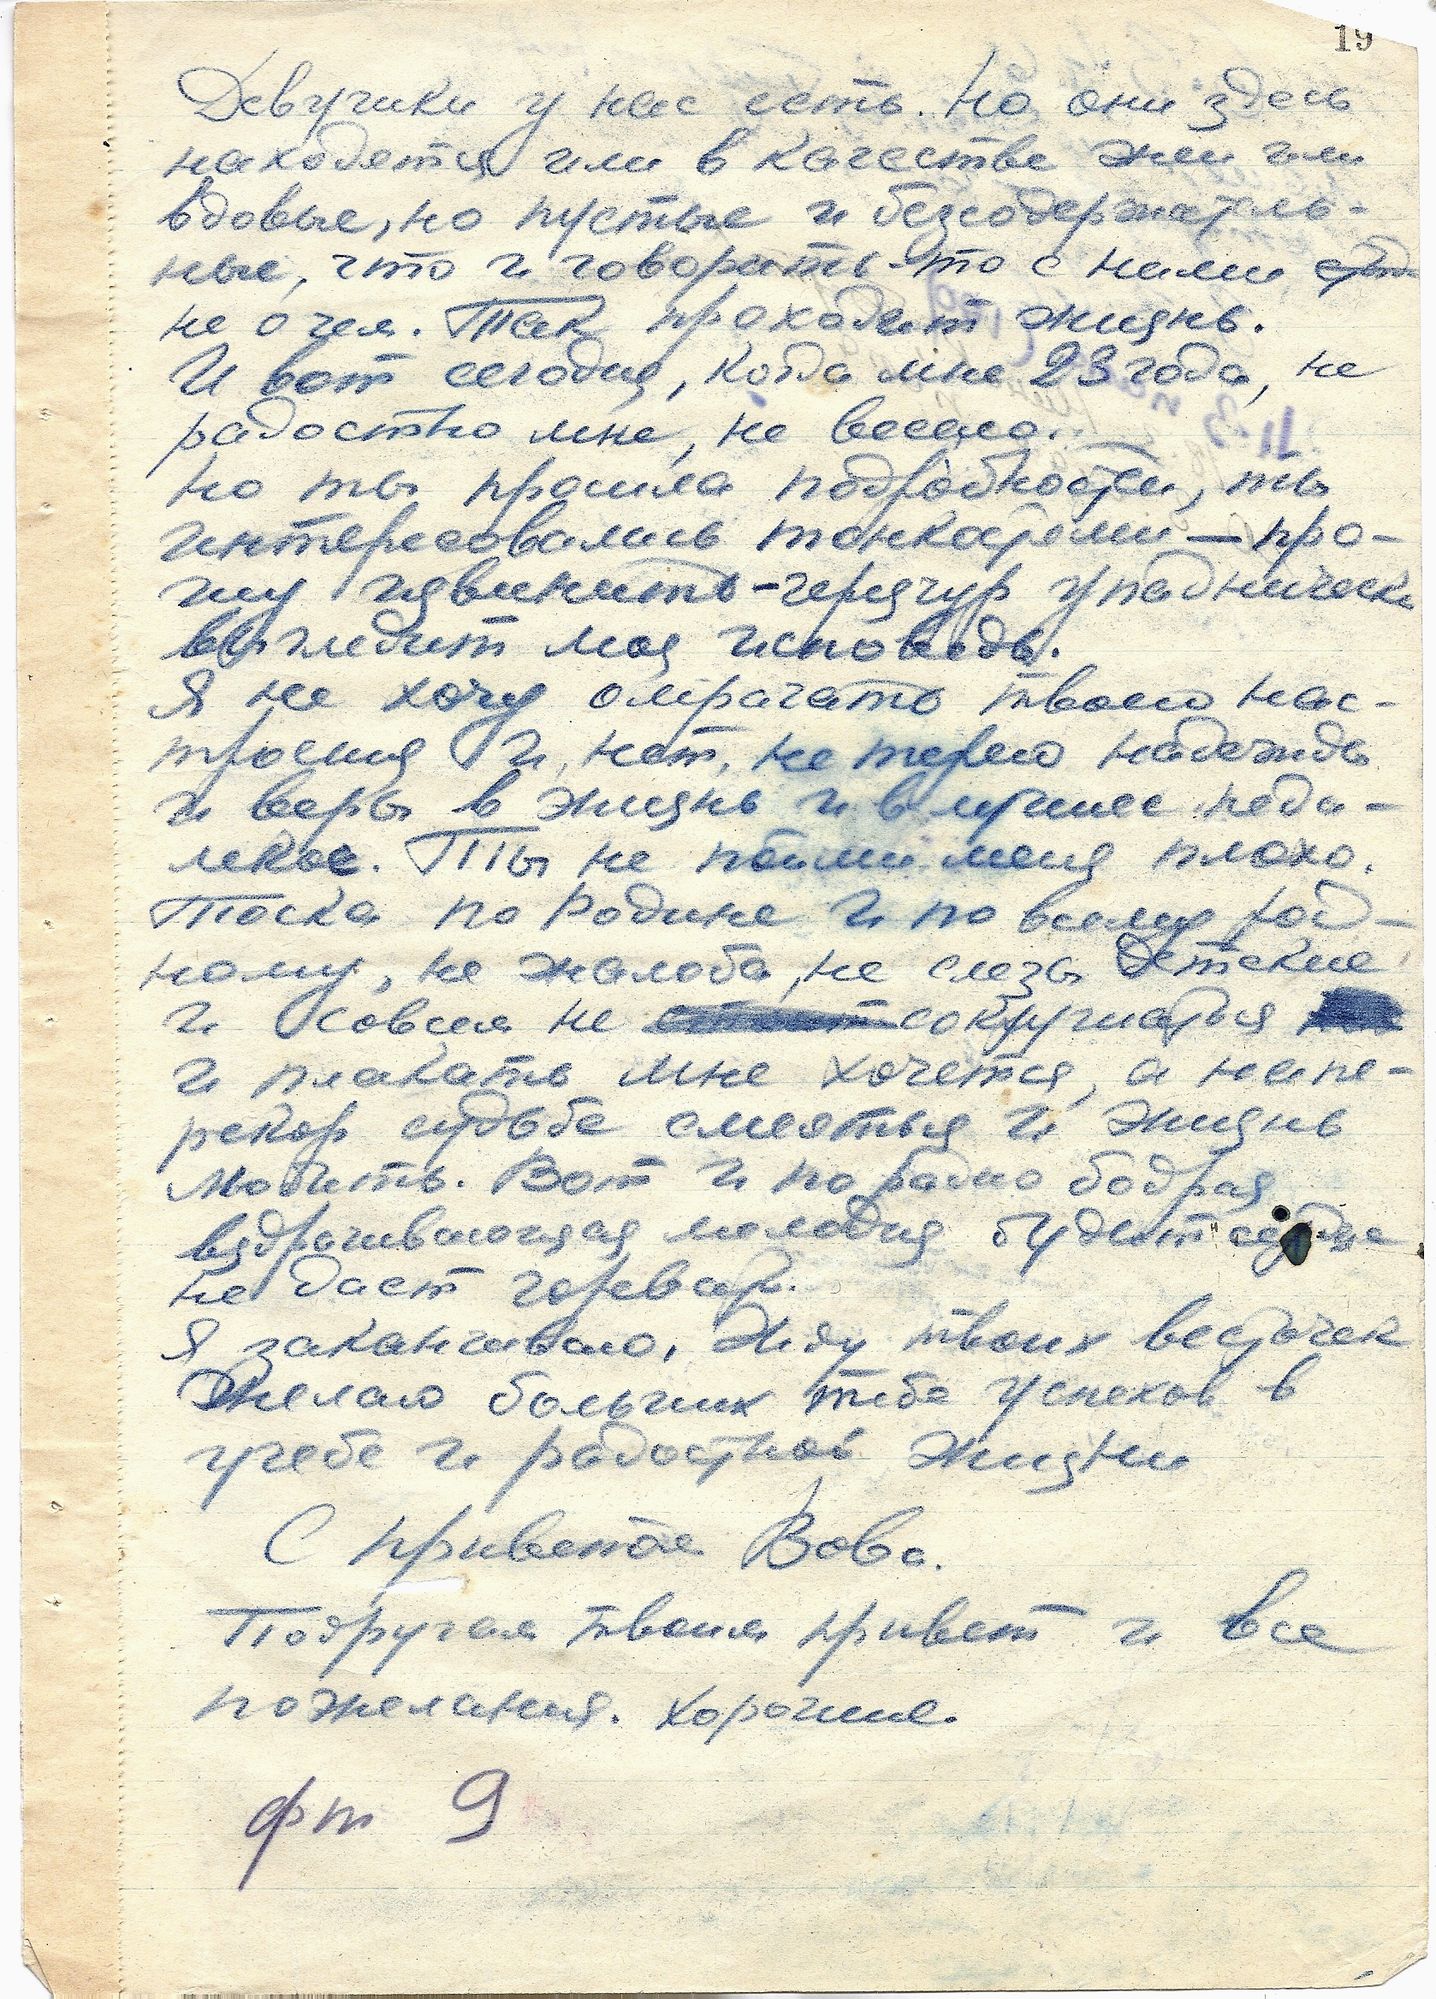 19
Девушки у нас есть. Но они здесь
находятся или в качестве жен или
вдовые, но пустые и безсодержатель-
ные, что и говорить-то с ними
не о чем. Так проходит жизнь.
И вот сегодня, когда мне 23 года, не
радостно мне, не весело.
Но ты просила подробностей, ты
интересовалась тонкостями — про-
шу извинить - чересчур упаднически
выгледит моя исповедь.
Я не хочу омрачать твоего нас-
троения и, нет, не теряю надежды
и веры в жизнь и в лучшее неда-
лекое. Ты не пойми меня плохо.
Тоска по Родине и по всему род-
ному, не жалоба, не слезы детские
и совсем не сокрушаться
и плакать мне хочется, а напе-
рекор судьбе смеяться и жизнь
любить. Вот и по радио бодрая
вздрагивающая мелодия будит сердце
не дает горевать.
Я заканчиваю, Жду твоих весточек
Желаю больших тебе успехов в
учебе и радостной жизни
С приветом Вова.
Подругам твоим привет и все
пожелания. хорошие.
фт 9